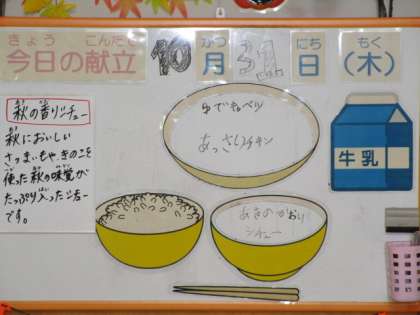 きょう こんだて がつ にち もく
今日の献立 10月31日(木)
萩の香りシチュー
萩においしい
さつまいもや、きのこを
使った萩の味覚が
たっぷり入ったシチュー
です。
ゆでキャベツ
あっさりチキン
牛乳
あきのかおり
シチュー